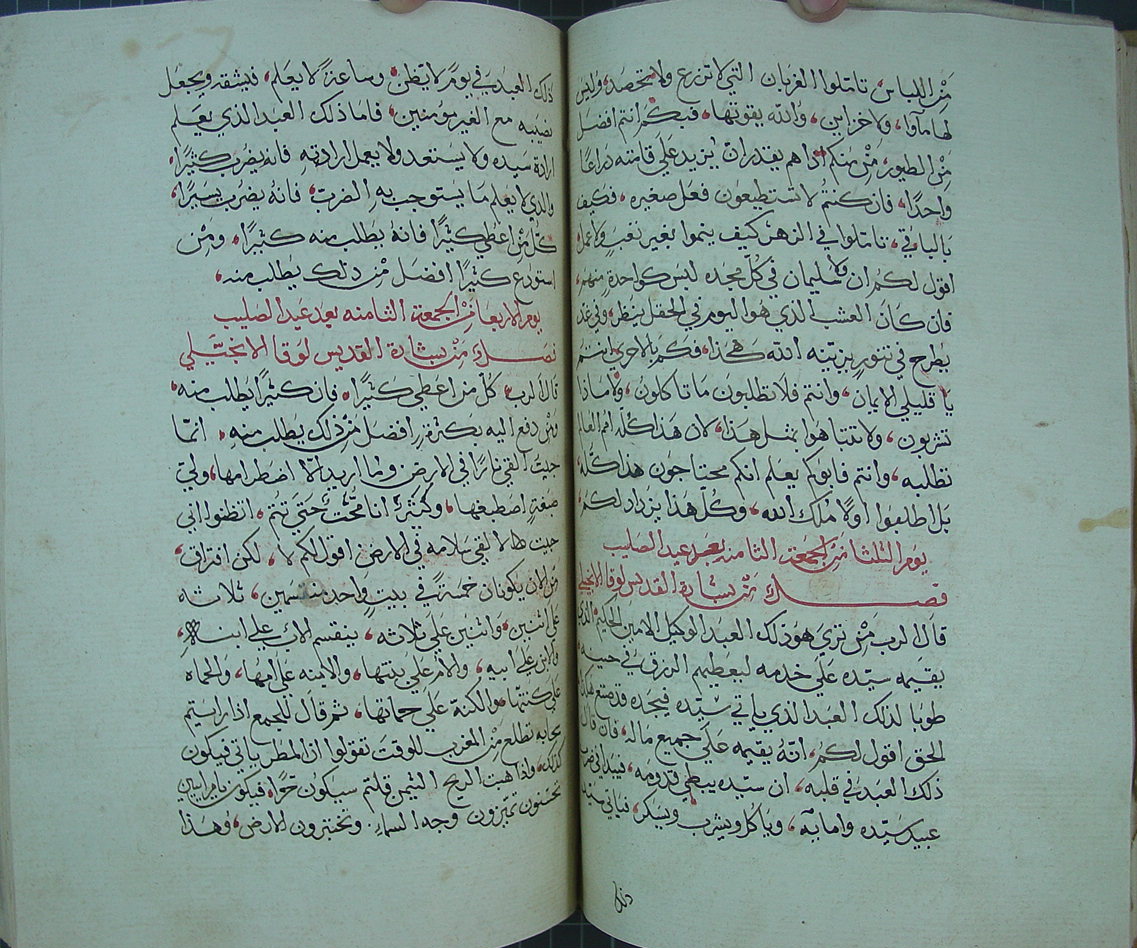 مَن اللباس، تاملوا الغربان التي لا تزرع ولا تحصد، وليس
لها مآوا، ولا خزاين، والله يقوتها، فبكم انتم افضل
من الطيور، مَن منكم اذا هم يقدر ان يزيد علي قامته دراعًا
واحدًا، فان كنتم لا تستطيعون فعل صغيره، فكيف
بالباقي، تاملوا في الزهر كيف ينموا بغير تعب ولا عمل
اقول لكم ان ولا سليمان في كل مجده لبس كواحدة منهم،
فان كان العشب الذي هو اليوم في الحقل ينظر، وفي غد
يطرح في تنور يزينه الله هكذا، فكم بالاحري انتم
يا قليلي الايمان، وانتم فلا تطلبون ما تاكلون، ولا ماذا
تشربون، ولا تتباهوا بمثل هذا، لان هذا كله امم العالم
تطلبه، وانتم فابوكم يعلم انكم محتاجون هذا كله،
بل اطلبوا اولًا ملك الله، وكل هذا يزداد لكم،
يوم الثلثا من الجمعة الثامنه بعد عيد الصليب
فصل من بشارة القديس لوقا الانجيلي
قال الرب مَن تري هو ذلك العبد الوكيل الامين الحكيم الذي
يقيمه سيّده علي خدمه ليعطيهم الرزق في حينه
طوبا لذلك العبد الذي ياتي سيّده فيجده قد صنع هكذا
الحق اقول لكم، انه يقيمه علي جميع ماله، فان قال
ذلك العبد في قلبه، ان سيّده يبطي قدومه، فيبدا في ضرب
عبيد سيّده وامايه، وياكل ويشرب ويسكر، فياتي سيّد
ذلك
ذلك العبد في يوم لا يظن، وساعة لا يعلم، فيشقه ويجعل
نصيبه مع الغير مومنين، فاما ذلك العبد الذي يعلم
ارادة سيده ولا يستعد ولا يعمل ارادته فانه يضرب كثيرًا،
والذي لا يعلم ما يستوجب به الضرب، فانه يضرب يسيرًا،
كل من اعطي كثيرًا فانه يطلب منه كثيرًا، ومَن
استودع كثيرًا افضل من ذلك يطلب منه،
يوم الاربعا من الجمعة الثامنه بعد عيد الصليب
فصل من بشارة القديس لوقا الانجيلي
قال الرب، كل من اعطي كثيرًا، فان كثيرًا يطلب منه
ومَن دفع اليه بكثرة، افضل من ذلك يطلب منه، انمّا
جيت القي نارًا في الارض وما اريد الا اضطرامها، ولي
صبغة اصطبغها، وكيف انا حتي تتم، اتظنوا اني
جيت هاهنا لالقي سلامه في الارض اقول لكم لا، لكن افتراق،
من الان يكونان خمسة في بيت واحد منقسمين، ثلاثه
علي اثنين، واثنين علي ثلاثه، ينقسم الاب علي ابنه،
والابن علي ابيه، والام علي بنتها، والابنه علي امها، والحماه
علي كنتها، والكنة علي حماتها، ثم قال للجمع اذا رايتم
سحابه تطلع من المغرب للوقت تقولوا ان المطر ياتي فيكون
كذلك، واذا هبت الريح التيمن قلتم سيكون حرًا، فيكون، يا مرايين
تحسنون تميزون وجه السماء، وتختبرون الارض، وهذا